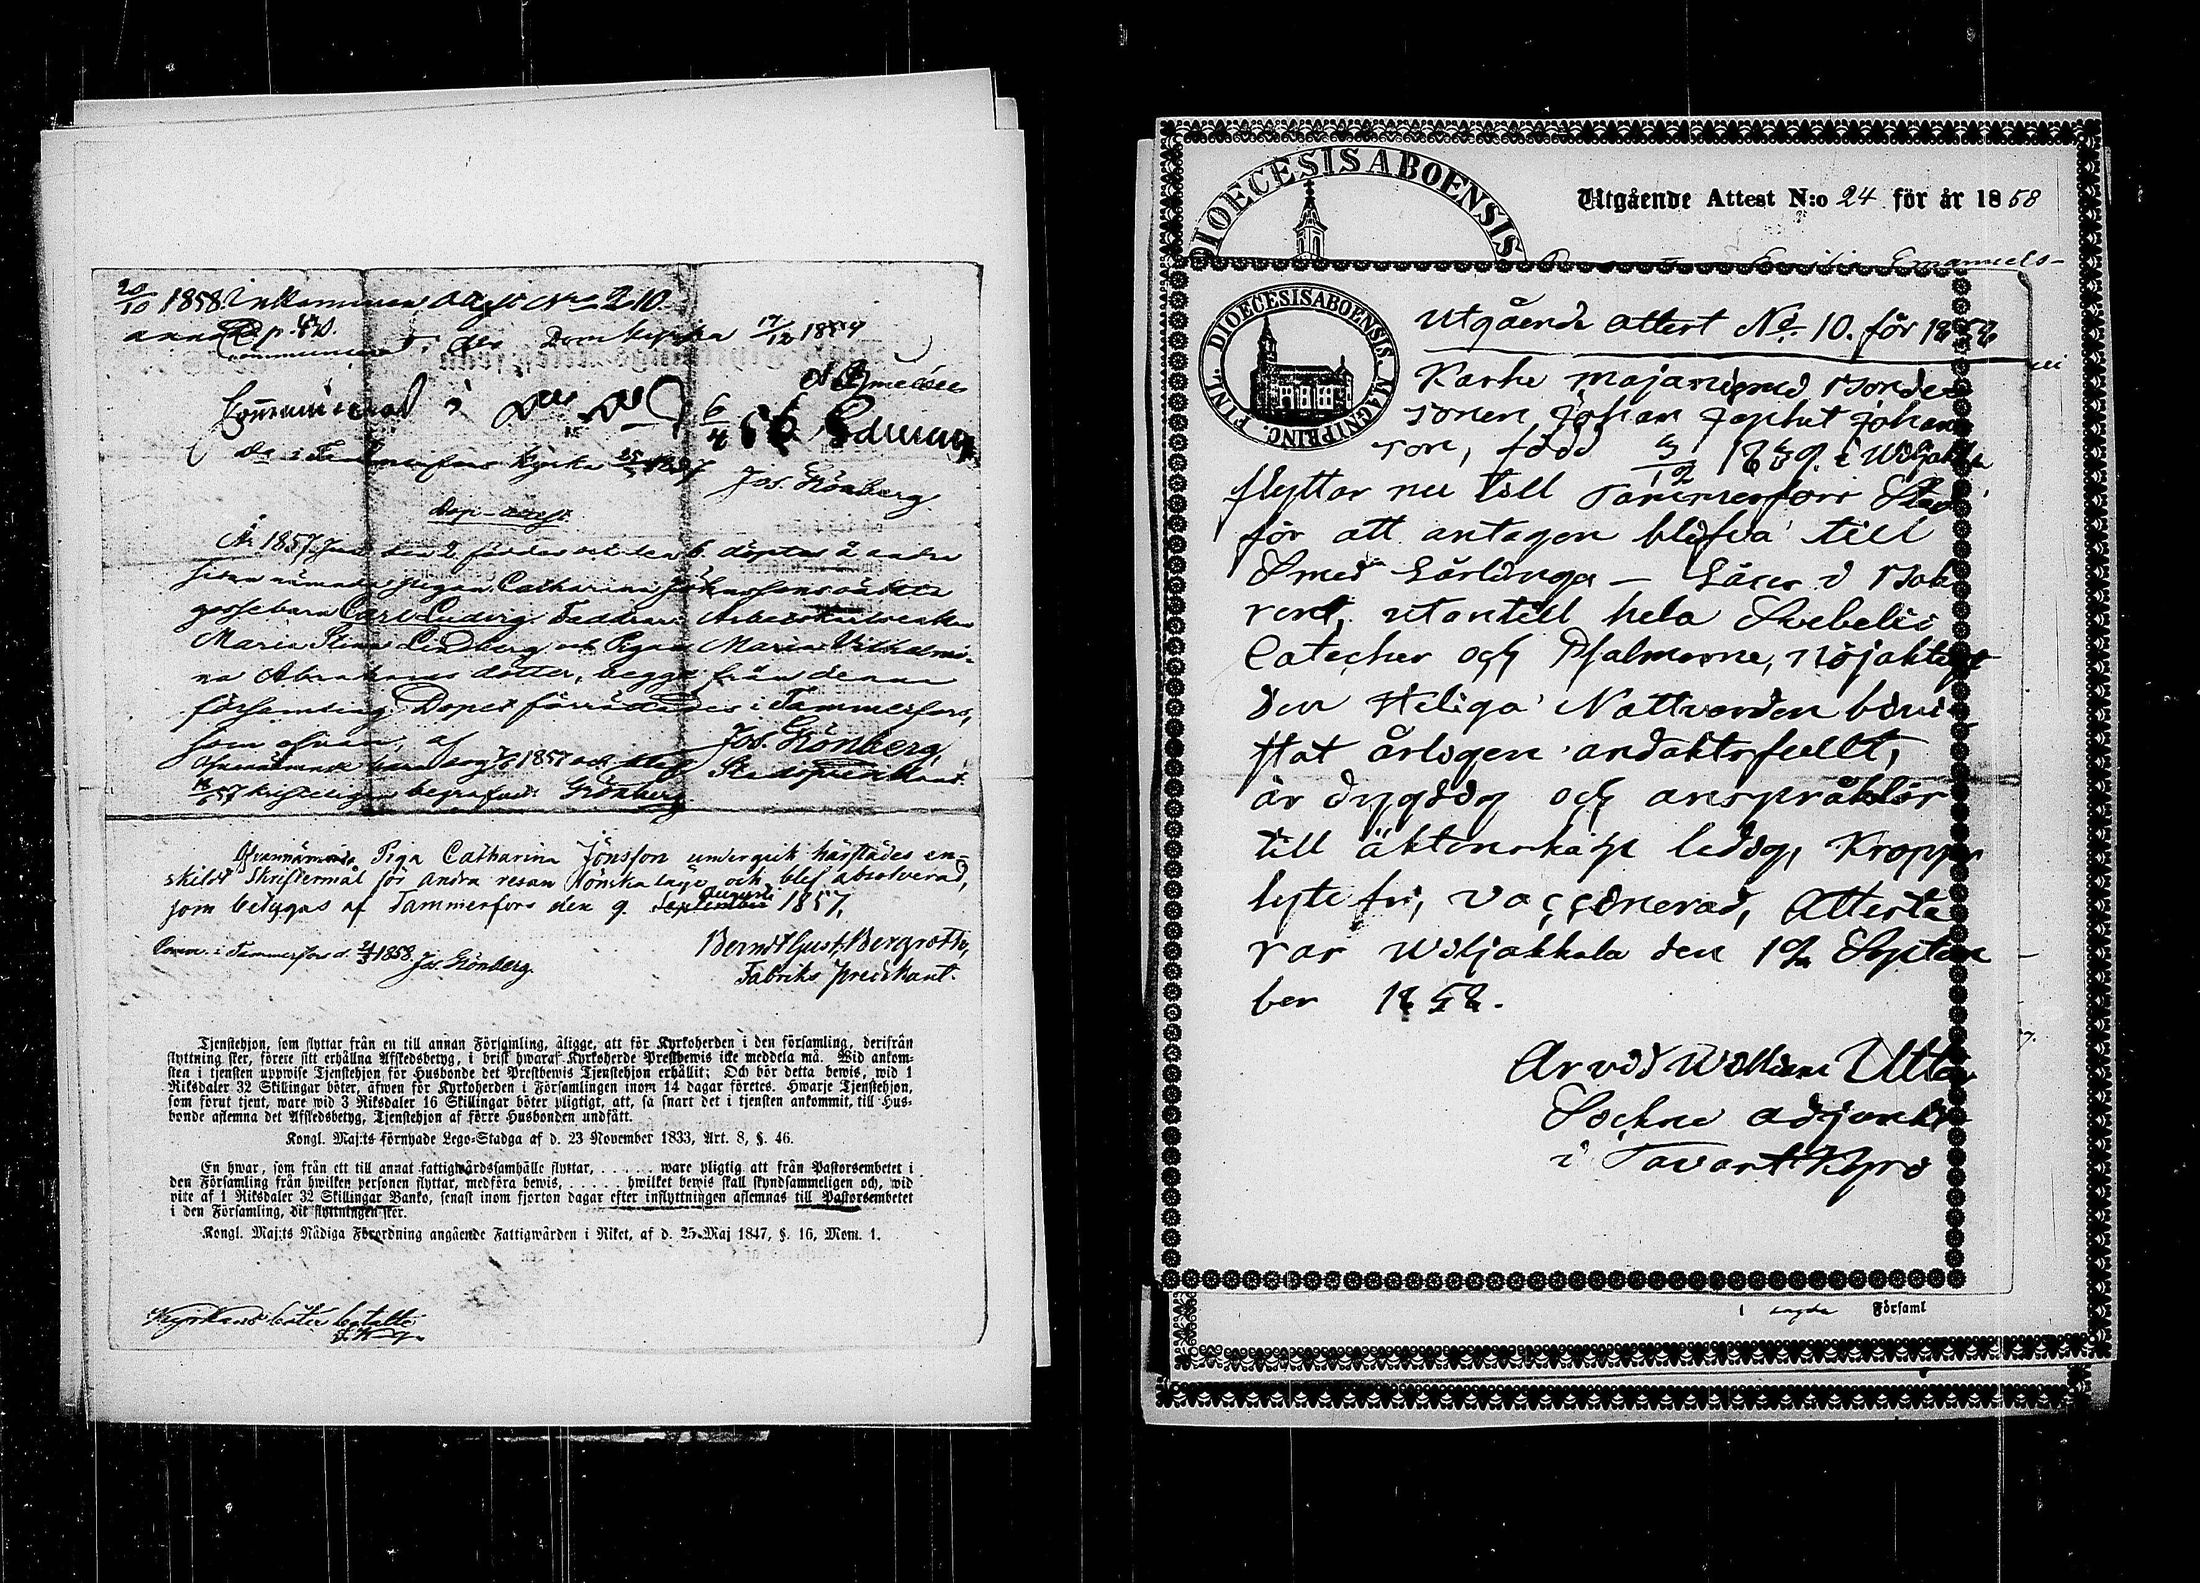 20/10 1858 Inkommen Attest No 210.
Dom kyrka 17/12 1854
Communicerat i
6/4 56
Kyrka
Jos. Grönberg
Dop-attest.
År 1857, den 2 föddes och den 6 döptes å andra
sidan nämnda pigan Catharina
gossebarn Carl Ludvig. Faddrar: Arbetskarlsenkan
Maria Stina Lindberg och Pigan Maria Vilhelmi-
na Abrahamsdotter, begge från denna
församling. Dopet förrättades i Tammerfors,
som ofvan, af Jos. Grönberg,
1857 och blef Stadspredikant.
christeligen begrafvet Grönberg
Ofvannämnda Piga Catharina Jönsson undergick härstädes en-
skildt Skriftermål för andra resan lönskaläge och blef absolverad,
som betygas af Tammerfors den 9. September Augusti 1857,
Berndt Gust. Bergroth,
Fabriks predikant.
Comm. i Tammerfors d. 1858. Jos. Grönberg.
Tjenstehjon, som flyttar från en till annan Församling, åligge, att för Kyrkoherden i den församling, derifrån
flyttning sker, förete sitt erhållna Afskedsbetyg, i brist hwaraf Kyrkoherde Prestbewis icke meddela må. Wid ankom-
sten i tjensten uppwise Tjenstehjon för Husbonde det Prestbewis Tjenstehjon erhållit; Och bör detta bewis, wid 1
Riksdaler 32 Skillingar böter, äfwen för Kyrkoherden i Församlingen inom 14 dagar företes. Hwarje Tjenstehjon,
som förut tjent, ware wid 3 Riksdaler 16 Skillingar böter pligtigt, att, så snart det i tjensten ankommit, till Hus-
bonde aflemna det Afskedsbetyg, Tjenstehjon af förre Husbonden undfått.
Kongl. Maj:ts förnyade Lego-Stadga af d. 23 November 1833, Art. 8, §. 46.
En hwar, som från ett till annat fattigwårdssamhälle flyttar, . . . . . . ware pligtig att från Pastorsembetet i
den Församling från hwilken personen flyttar, medföra bewis, . . . . . . hwilket bewis skall skyndsammeligen och, wid
wite af 1 Riksdaler 32 Skillingar Banko, senast inom fjorton dagar efter inflyttningen aflemnas till Pastorsembetet
i den Församling, dit flyttningen sker.
Kongl. Maj:ts Nådiga Förordning angående Fattigwården i Riket, af d. 25 Maj 1847, §. 16, Mom. 1.
böter betalte
DIOECESIS ABOENSIS
Utgående Attest N:o 24 för år 1858
Emanuels-
FINL. DIOECESIS ABOENSIS MAGNI PRINC.
Utgående attest No 10. för 1858
Karhe majaniemi Bonde
sonen Johan Japhet Johans
son, född i Wiljakkala
flyttar nu till Tammerfors Stad
för att antagen blifva till
Smed Lärlinga – Läser i Bok
rent, utantill hela Svebelii
Catecher och Psalmerne, nöjaktigt
den Heliga Nattvarden bevi-
stat årligen andaktsfullt,
är dygdig och anspråkslös
till äktenskap ledig, Kropps
lyte fri, vaccinerad, Atteste
rar Wiljakkala den Septem
ber 1858.
Arvid William
Sockne adjunkt
i Tavast Kyro
i Församl